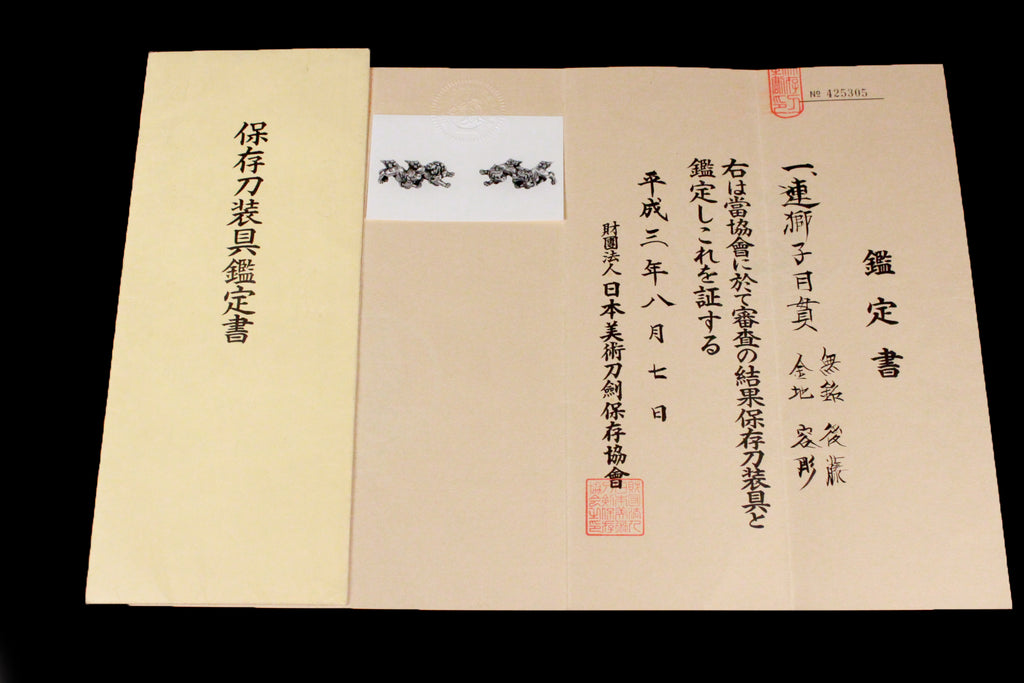 保存刀装具鑑定書
№ 425305
鑑定書
一、連獅子目貫
無銘 後藤
金地 容彫
右は當協會に於て審査の結果保存刀装具と
鑑定しこれを証する
平成三年八月七日
財團法人日本美術刀劍保存協會